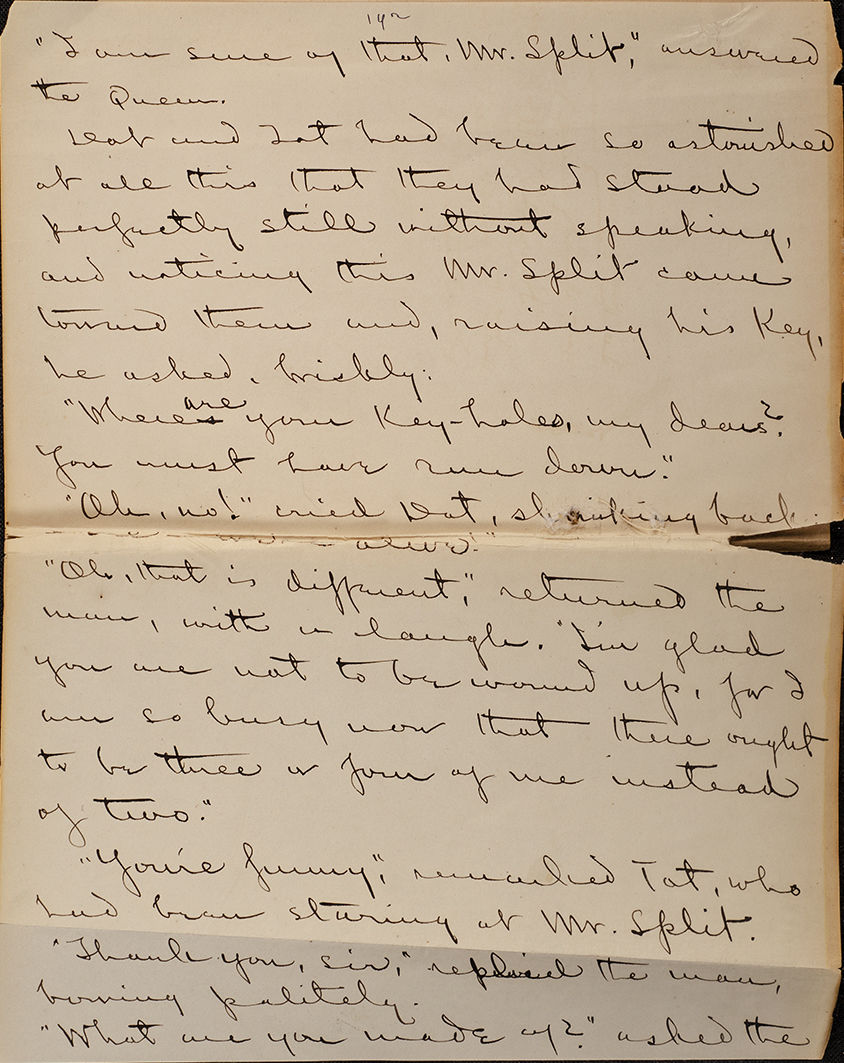 192
"I am sure of that, Mr. Split," answered
the Queen.
Dot and Tot had been so astonished
at all this that they had stood
perfectly still without speaking,
and noticing this Mr. Split came
toward them and, raising his key,
he asked, briskly:
"Where are your Key-holes, my dears?
You must have run down."
"Oh, no!" cried Dot, shrinking back
alive!"
"Oh, that is different," returned the
man, with a laugh. "I'm glad
you are not to be wound up, for I
am so busy now that there ought
to be three or four of me instead
of two."
"You're funny", remarked Tot, who
had been staring at Mr. Split.
"Thank you, sir," replied the man,
bowing politely.
"What are you made of?" asked the